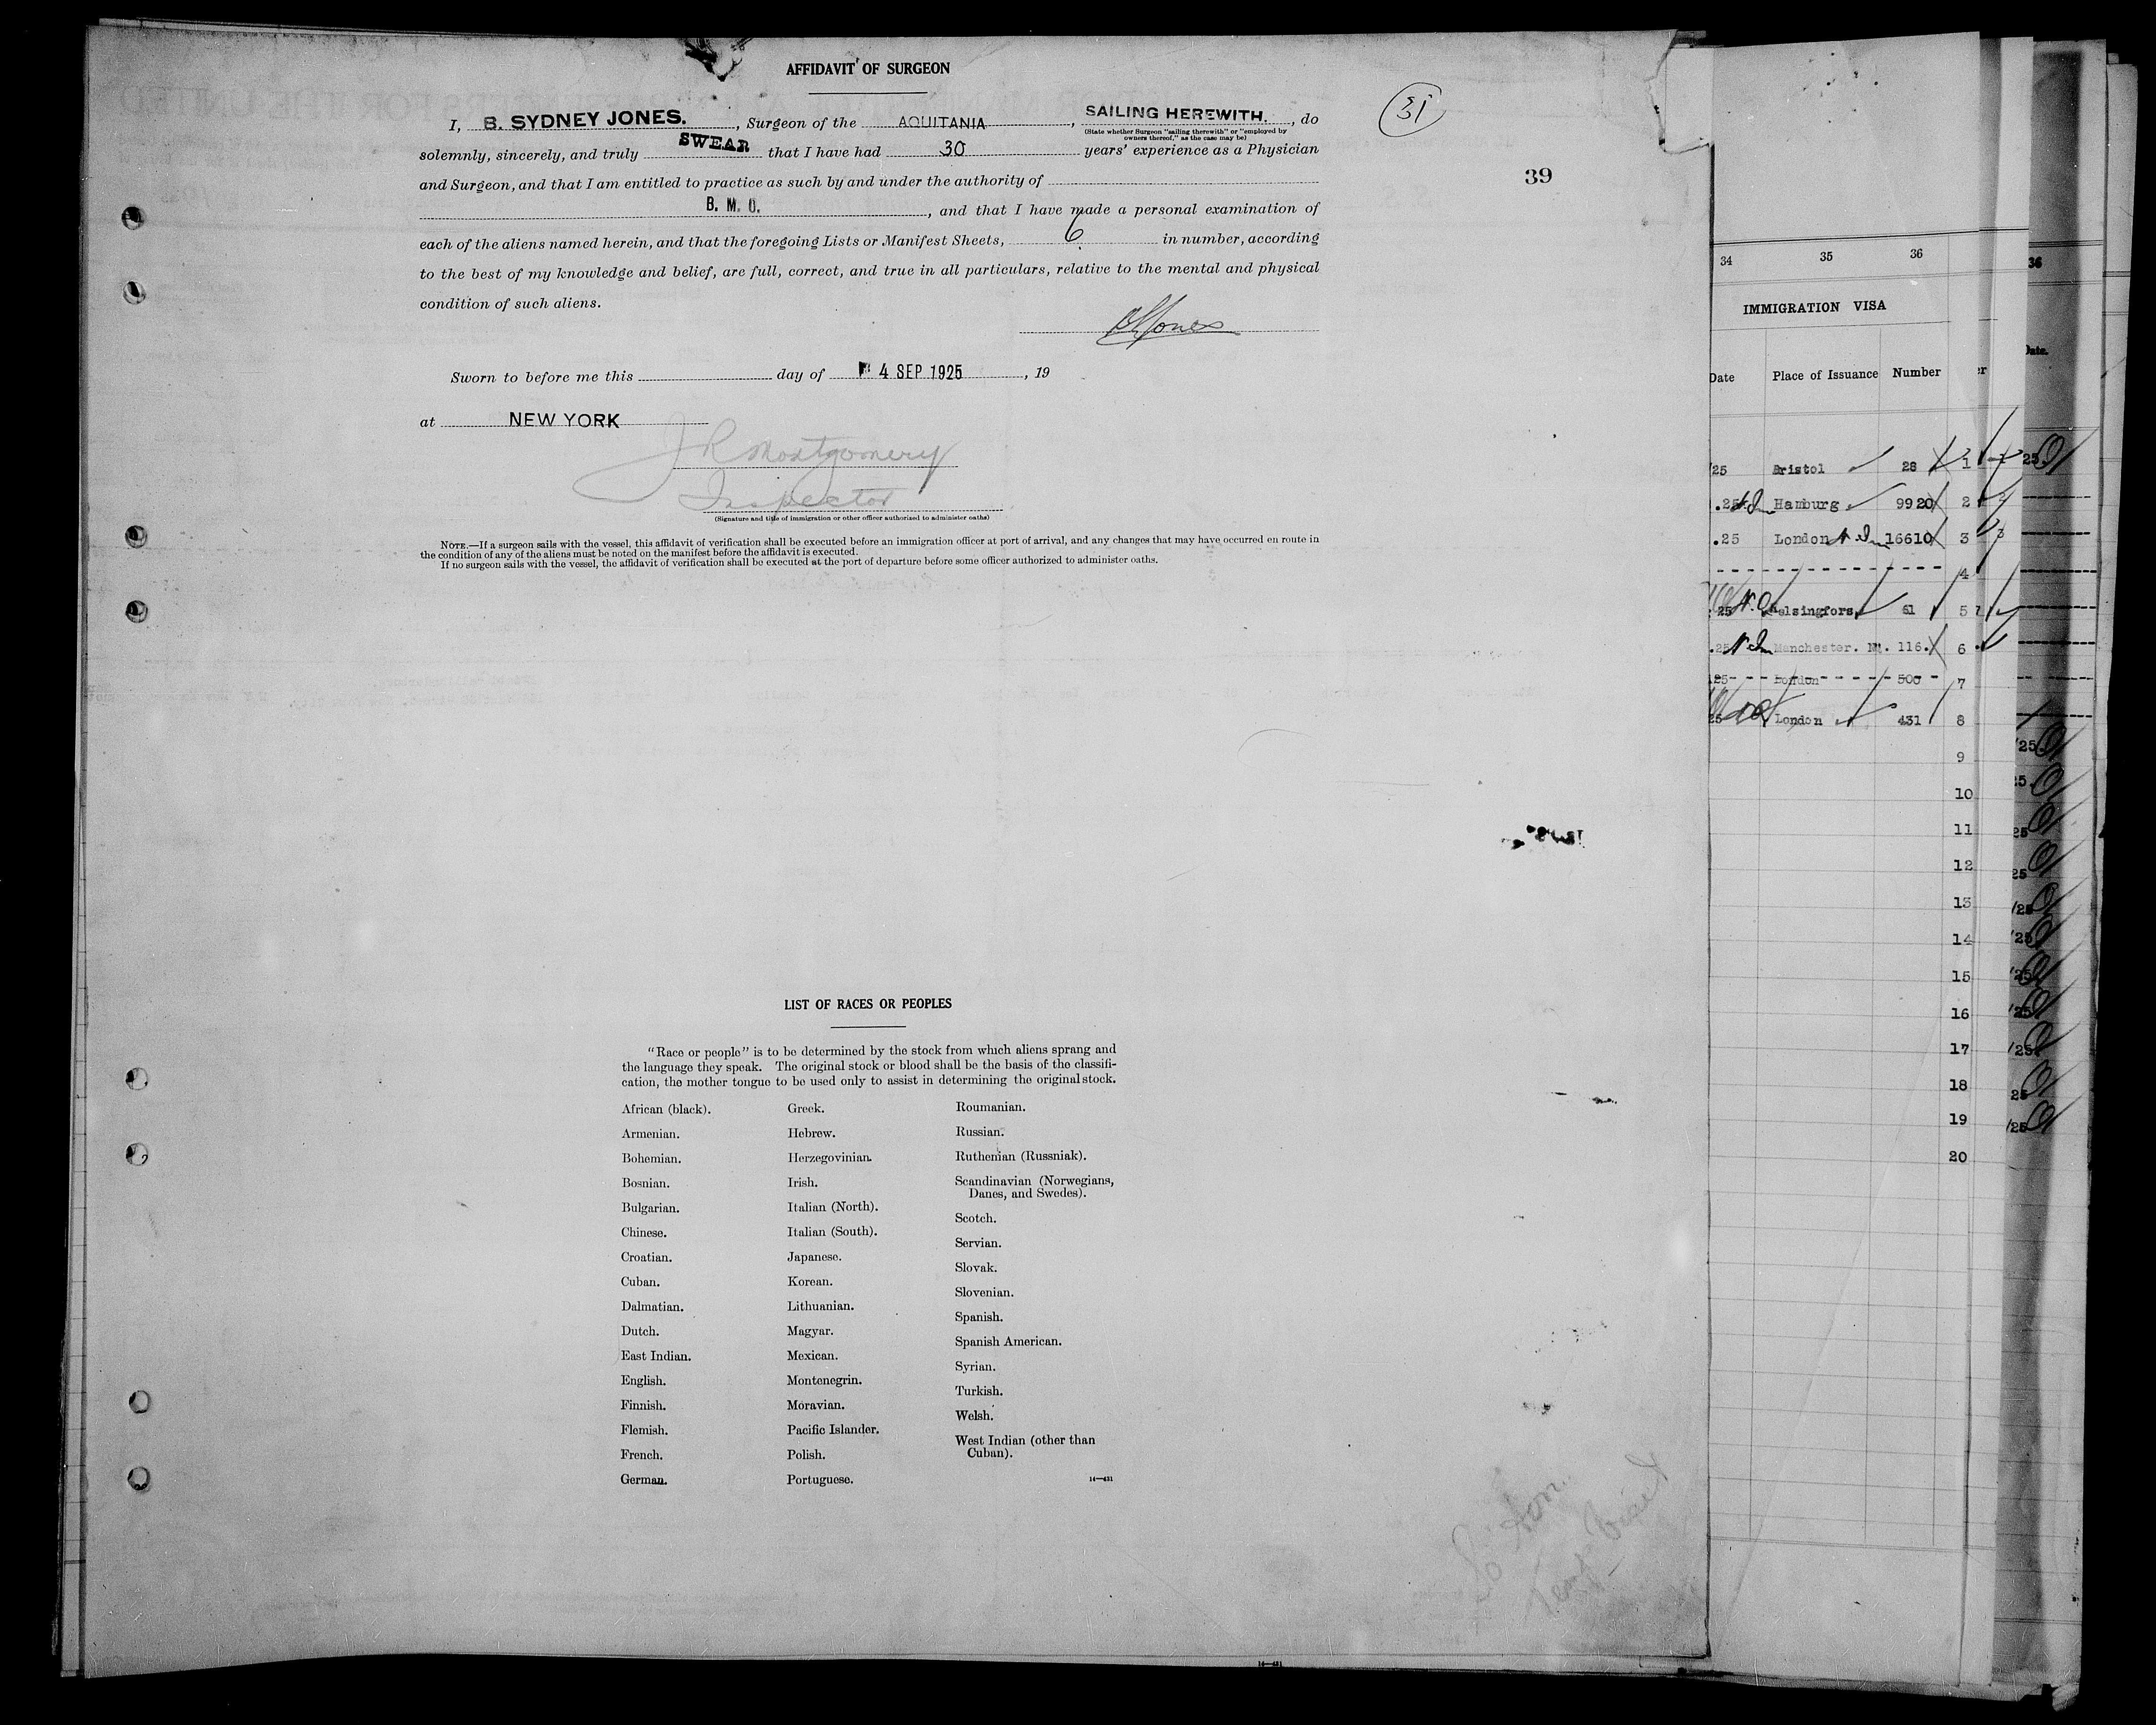 AFFIDAVIT OF SURGEON
31
I, B. SYDNEY JONES., Surgeon of the AQUITANIA, SAILING HEREWITH., do
(State whether Surgeon "sailing therewith" or "employed by
owners thereof," as the case may be)
solemnly, sincerely, and truly SWEAR that I have had 30 years' experience as a Physician
39
and Surgeon, and that I am entitled to practice as such by and under the authority of
B. M. O., and that I have made a personal examination of
each of the aliens named herein, and that the foregoing Lists or Manifest Sheets, 6 in number, according
to the best of my knowledge and belief, are full, correct, and true in all particulars, relative to the mental and physical
condition of such aliens.
BSJones
Sworn to before me this day of 4 SEP 1925, 19
at NEW YORK
J R Montgomery
Inspector
(Signature and title of immigration or other officer authorized to administer oaths)
NOTE.—If a surgeon sails with the vessel, this affidavit of verification shall be executed before an immigration officer at port of arrival, and any changes that may have occurred en route in
the condition of any of the aliens must be noted on the manifest before the affidavit is executed.
If no surgeon sails with the vessel, the affidavit of verification shall be executed at the port of departure before some officer authorized to administer oaths.
LIST OF RACES OR PEOPLES
"Race or people" is to be determined by the stock from which aliens sprang and
the language they speak. The original stock or blood shall be the basis of the classifi-
cation, the mother tongue to be used only to assist in determining the original stock.
African (black).
Armenian.
Bohemian.
Bosnian.
Bulgarian.
Chinese.
Croatian.
Cuban.
Dalmatian.
Dutch.
East Indian.
English.
Finnish.
Flemish.
French.
German.
Greek.
Hebrew.
Herzegovinian.
Irish.
Italian (North).
Italian (South).
Japanese.
Korean.
Lithuanian.
Magyar.
Mexican.
Montenegrin.
Moravian.
Pacific Islander.
Polish.
Portuguese.
Roumanian.
Russian.
Ruthenian (Russniak).
Scandinavian (Norwegians,
Danes, and Swedes).
Scotch.
Servian.
Slovak.
Slovenian.
Spanish.
Spanish American.
Syrian.
Turkish.
Welsh.
West Indian (other than
Cuban).
14—431
14—431
34 35 36
IMMIGRATION VISA
Date Place of Issuance Number
/25 Bristol 28 1
.25 Hamburg 9920 2
.25 London 16610 3
4
25 Helsingfors 61 5
.25 Manchester. 116. 6
25 London 500 7
25 London 431 8
9
10
11
12
13
14
15
16
17
18
19
20
36
Date.
25.
/25.
25.
25
25
/25
/25
/25
/25
/25
25
/25